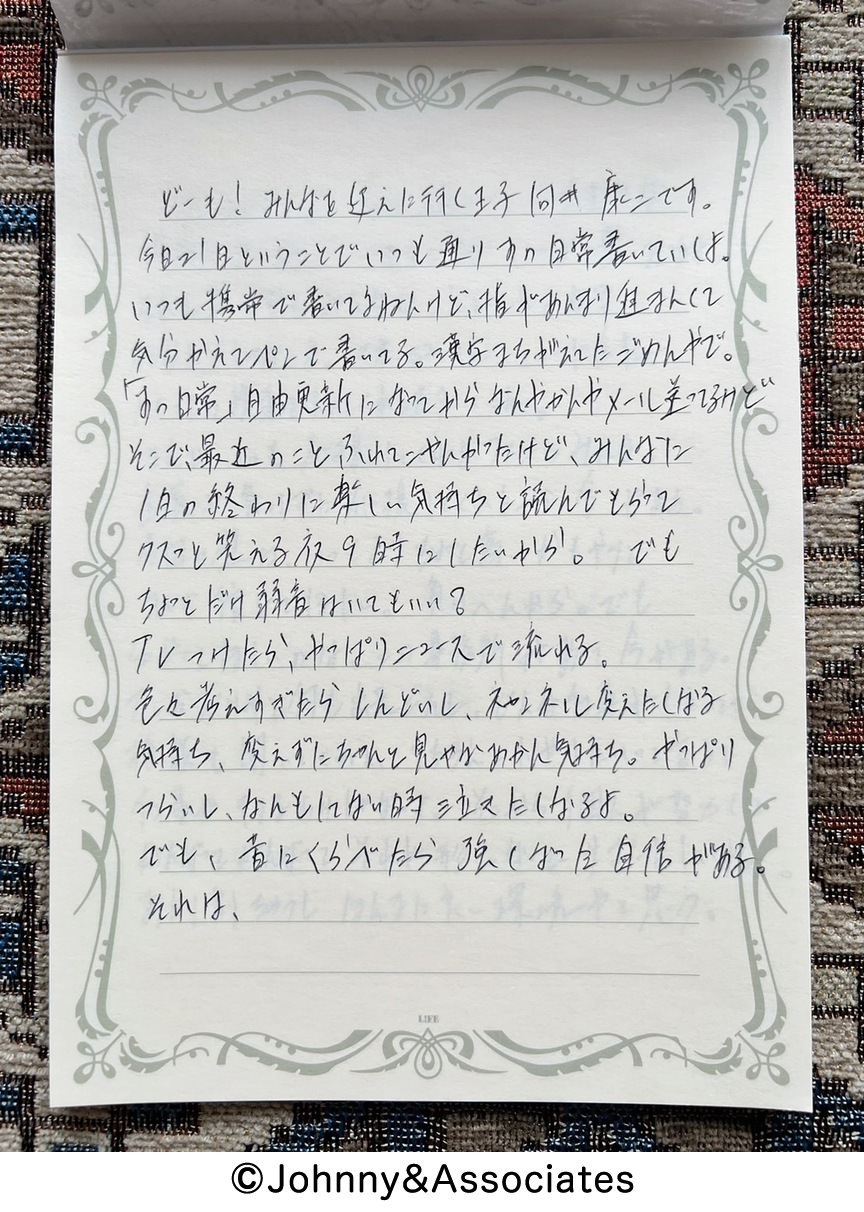 どーも！みんなを迎えに行く王子 向井 康二です。
今日21日ということでいつも通りすの日常書いていくよ。
いつも携帯で書いてるねんけど、指があんまり進まんくて
気分かえてペンで書いてる。漢字まちがえてたごめんやで。
「すの日常」自由更新になってからなんやかんやメール送ってるけど
そこで、最近のことふれてこやんかったけど、みんなに
1日の終わりに楽しい気持ちと読んでもらって
クスっと笑える夜9時にしたいから。 でも
ちょっとだけ弱音はいてもいい？
TVつけたら、やっぱりニュースで流れる。
色々考えすぎたらしんどいし、チャンネル変えたくなる
気持ち、変えずにちゃんと見やなあかん気持ち。やっぱり
つらいし、なんもしてない時泣きたくなるよ。
でも、昔にくらべたら強くなった自信がある。
それは、
LIFE
©Johnny&Associates